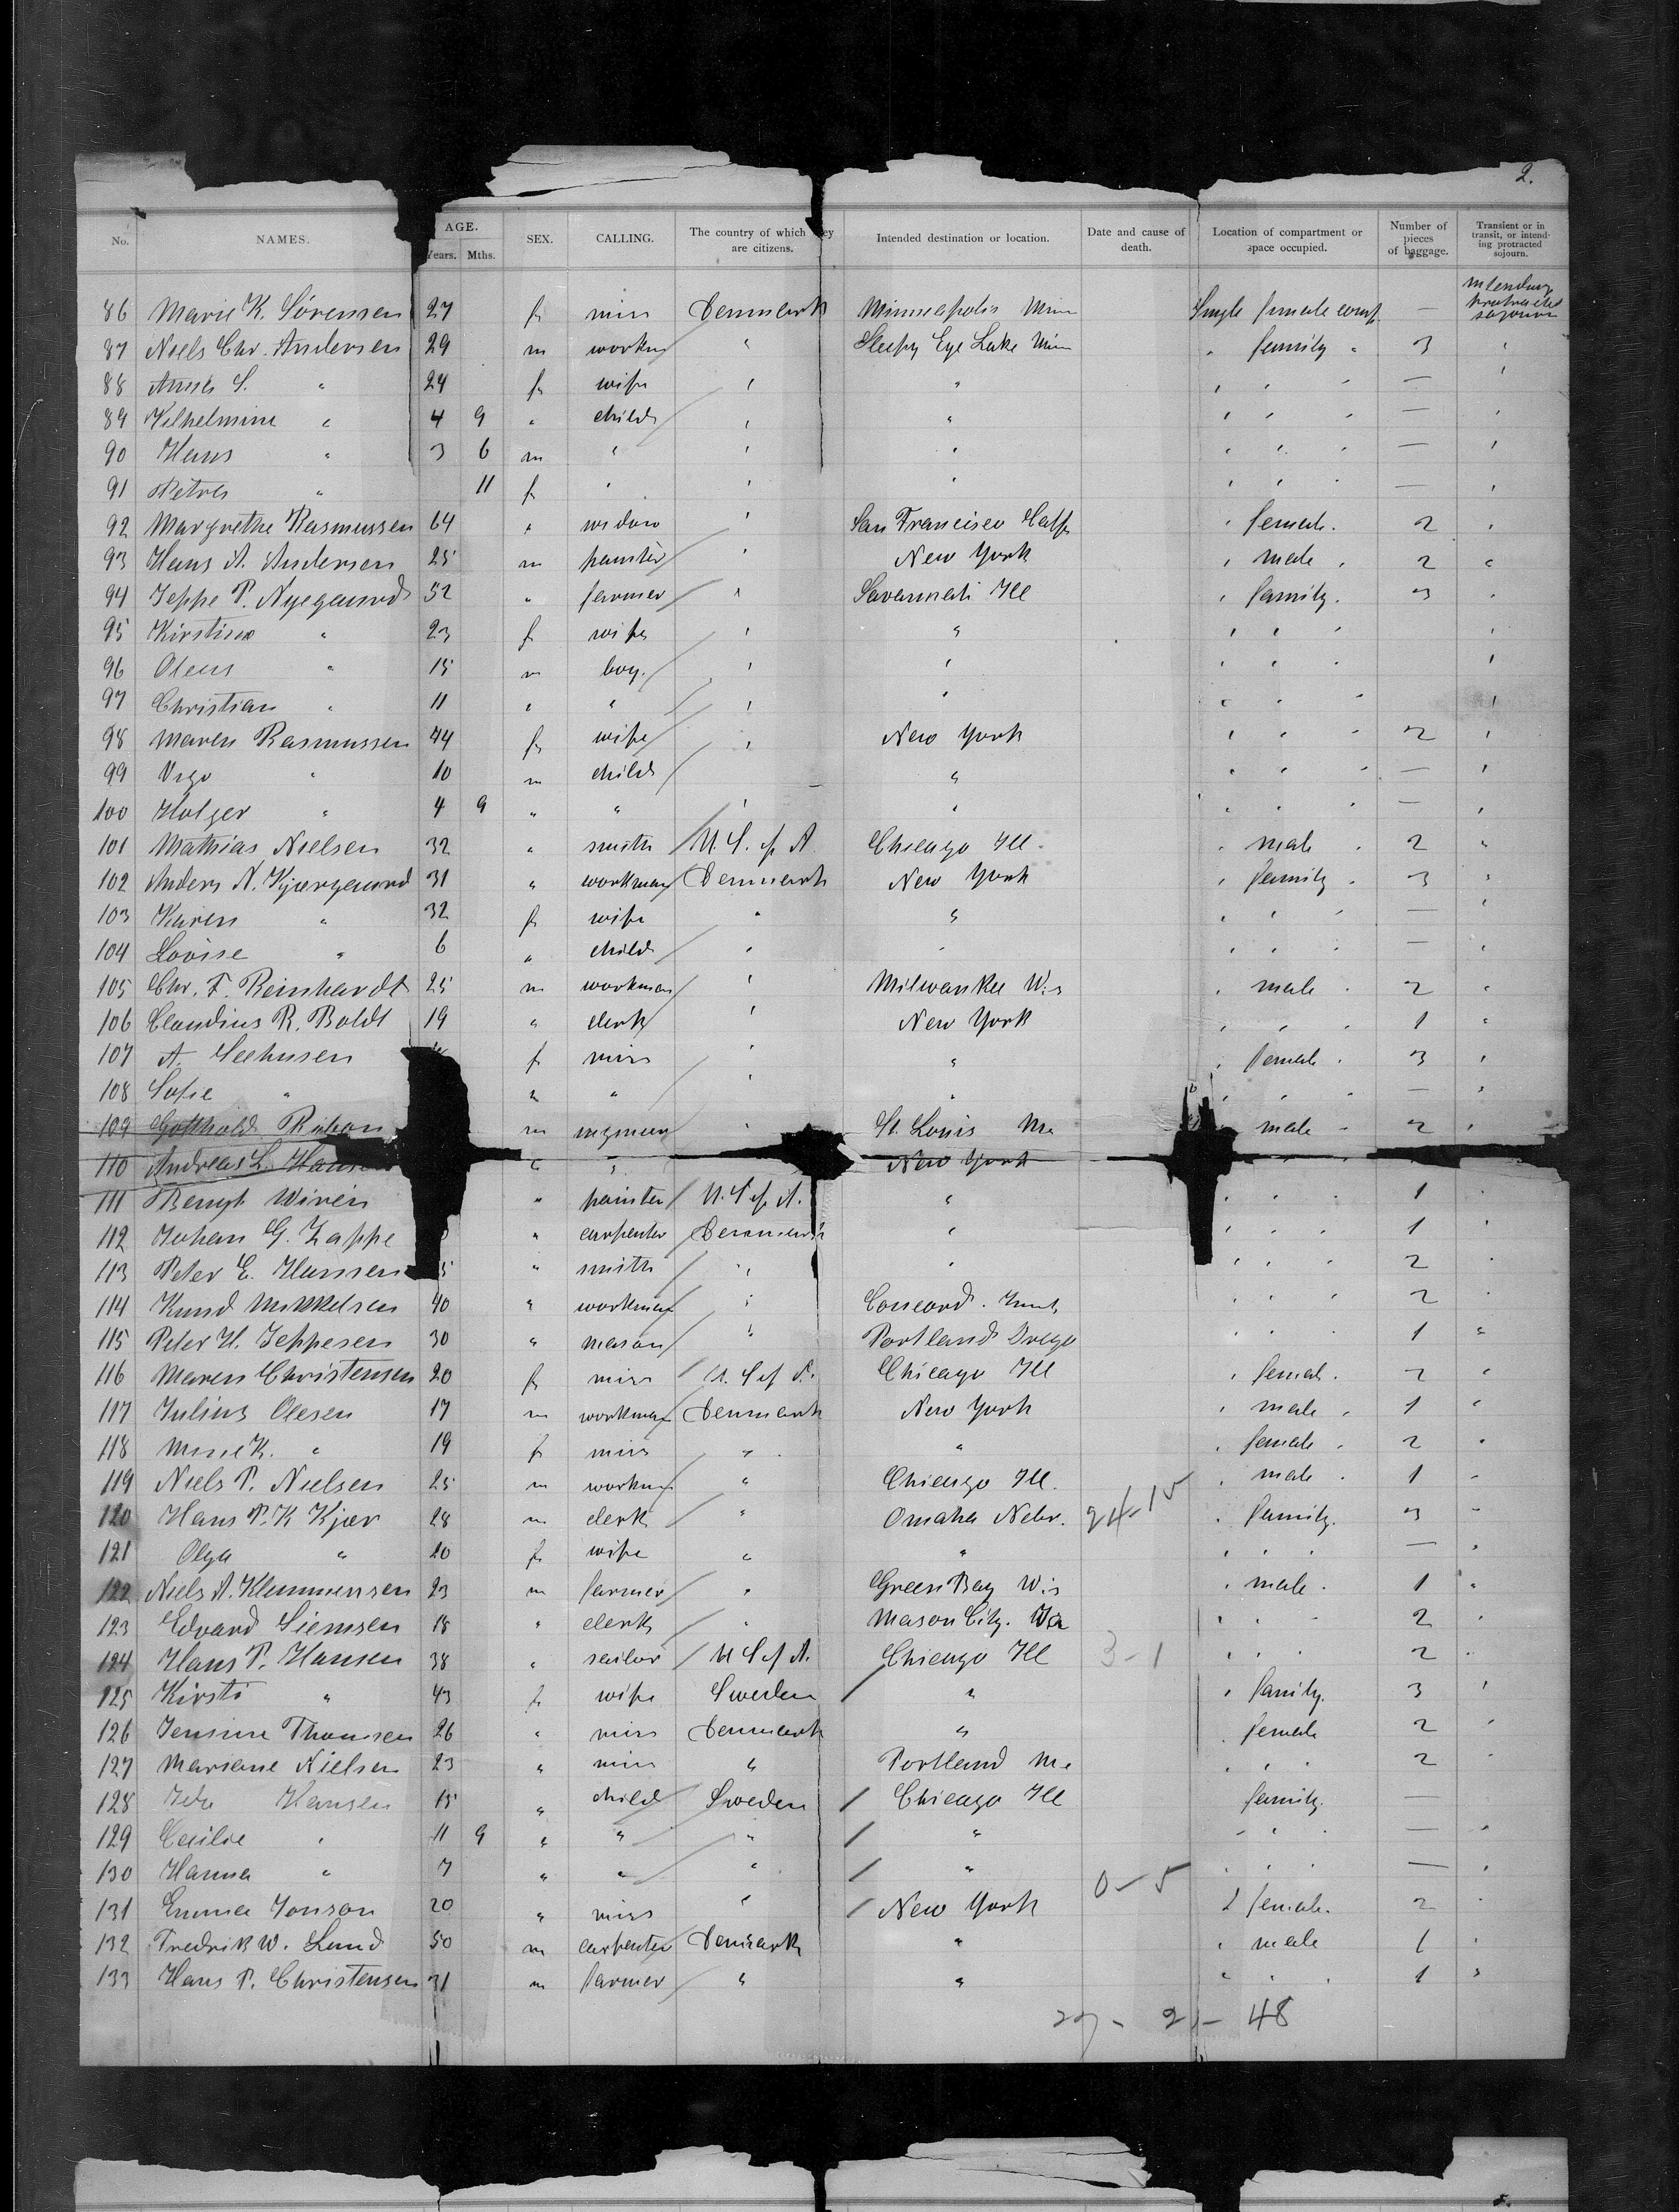 2.
No. NAMES. AGE. Years. Mths. SEX. CALLING. The country of which they are citizens. Intended destination or location. Date and cause of death. Location of compartment or space occupied. Number of pieces of baggage. Transient or in transit, or intending protracted sojourn.
86 Marie K. Sörensen 27 f miss Denmark Minneapolis Minn Single female comp. — intending protracted sojourn
87 Niels Chr. Andersen 29 m workm " Sleepy Eye Lake Minn " family " 3 "
88 S. " 24 f wife " " " " " — "
89 Vilhelmine " 4 9 " child " " " " " — "
90 Hans " 3 6 m " " " " " " — "
91 Petra " 11 f " " " " " " — "
92 Margrethe Rasmussen 64 " widow " San Francisco Calif " female. 2 "
93 Hans A. Andersen 25 m painter " New York " male " 2 "
94 Jeppe P. Nyegaard 52 " farmer " Savannah Ill " family. 3 "
95 Kirstine " 23 f wife " " " " " "
96 Oleus " 15 m boy. " " " " " "
97 Christian " 11 " " " " " " " "
98 Maren Rasmussen 44 f wife " New York " " " 2 "
99 Vigo " 10 m child " " " " — "
100 Holger " 4 9 " " " " " " " — "
101 Mathias Nielsen 32 " smith U. S. of A. Chicago Ill. " male " 2 "
102 Anders N. Kjærgaard 31 " workman Denmark New York " family " 3 "
103 Karen " 32 f wife " " " " " — "
104 Lovise " 6 " child " " " " " — "
105 Chr. F. Reinhardt 25 m workman " Milwaukee Wis " male " 2 "
106 Claudius R. Boldt 19 " clerk " New York " " " 1 "
107 A. Seehusen f miss " " " female " 3 "
108 Sofie " " " " " " " " — "
109 Gotthold m engineer " St. Louis Mo " male " 2 "
110 Andreas L. Hansen " " New York
111 Bengt Wirén " painter U. S of A. " " " " 1 "
112 Johan G. Zappe " carpenter Denmark " " " " 1 "
113 Peter E. Hansen 5 " smith " " " " " 2 "
114 Knud Mikkelsen 40 " workman " Concord. " " " 2 "
115 Peter H. Jeppesen 30 " mason " Portland Orego " " " 1 "
116 Maren Christensen 20 f miss U. S of A. Chicago Ill " female. 2 "
117 Julius Olesen 17 m workman Denmark New York " male " 1 "
118 K. " 19 f miss " " " female " 2 "
119 Niels P. Nielsen 25 m workm " Chicago Ill. " male " 1 "
120 Hans P. K Kjær 28 m clerk " Omaha Nebr. 24-15 " family. 3 "
121 Olga " 20 f wife " " " " " — "
122 Niels A. Klemmensen 23 m farmer " Green Bay Wis " male. 1 "
123 Edvard Siemsen 18 " clerk " Mason City. " " " 2 "
124 Hans P. Hansen 38 " sailor U S of A. Chicago Ill 3-1 " " " 2 "
125 Kirsti " 43 f wife Sweden / " " family. 3 "
126 Jensine Thomsen 26 " miss Denmark " " female 2 "
127 Mariane Nielsen 23 " miss " Portland Me " " 2 "
128 Ida Hansen 15 " child Sweden / Chicago Ill family. —
129 Cecilie " 11 9 " " " / " " " — "
130 Hanna " 7 " " " / " " " " — "
131 Emma Jonson 20 " miss " / New York 0-5 " female. 2 "
132 Fredrik W. Lund 50 m carpenter Denmark " " male 1 "
133 Hans P. Christensen 31 m farmer " " " " " 1 "
27 - 21 - 48